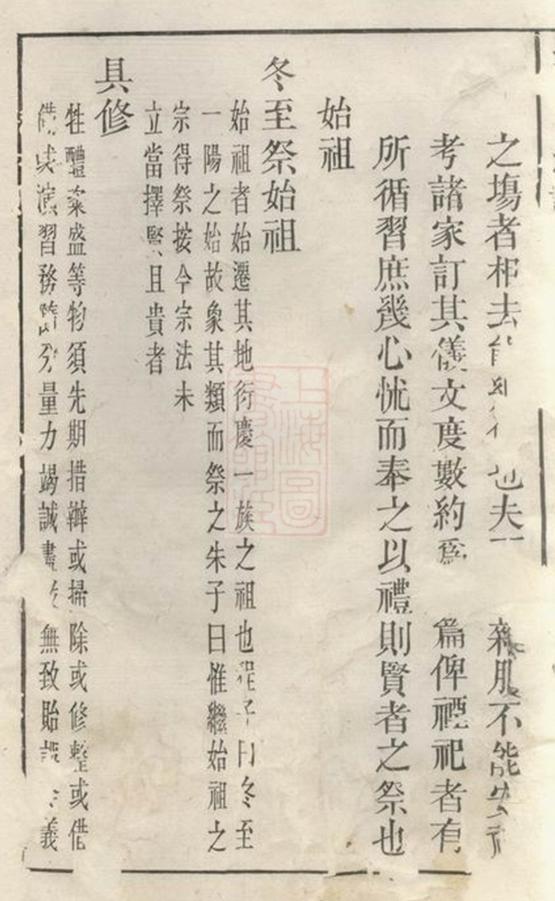 之塲者相去 也夫 不能
考諸家訂其儀文度數約爲 篇俾禋祀者有
所循習庶幾心恍而奉之以禮則賢者之祭也
始祖
冬至祭始祖
始祖者始遷其地衍慶一族之祖也程子曰冬至
一陽之始故象其類而祭之朱子曰惟繼始祖之
宗得祭按今宗法未
立當擇賢且貴者
具修
牲醴粢盛等物須先期措辦或掃除或修整或借
備或演習務 分量力竭誠盡 無致貽 義